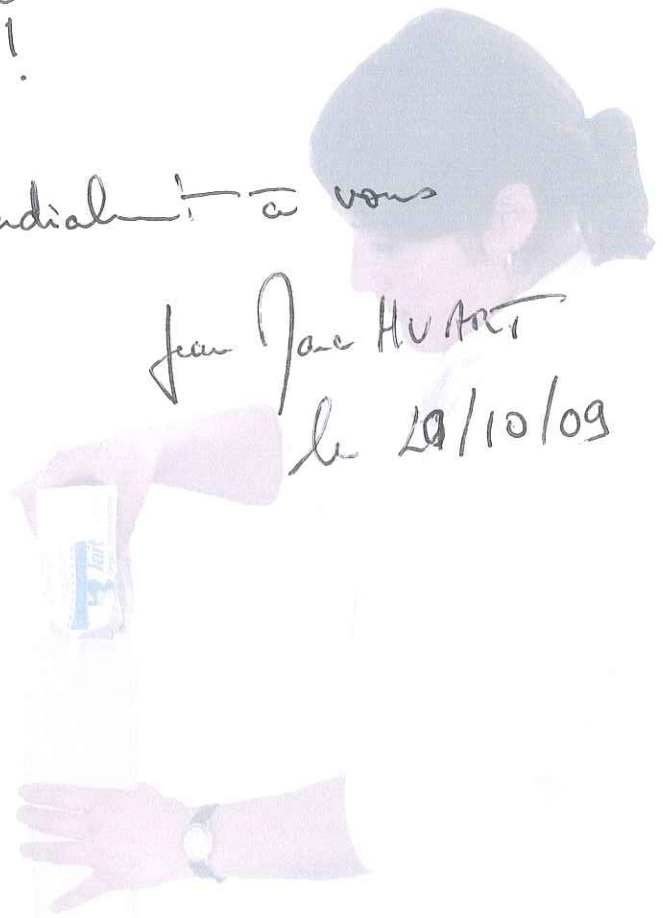 !
ndialement à vous
Jean Marc HUART
le 29/10/09
lait